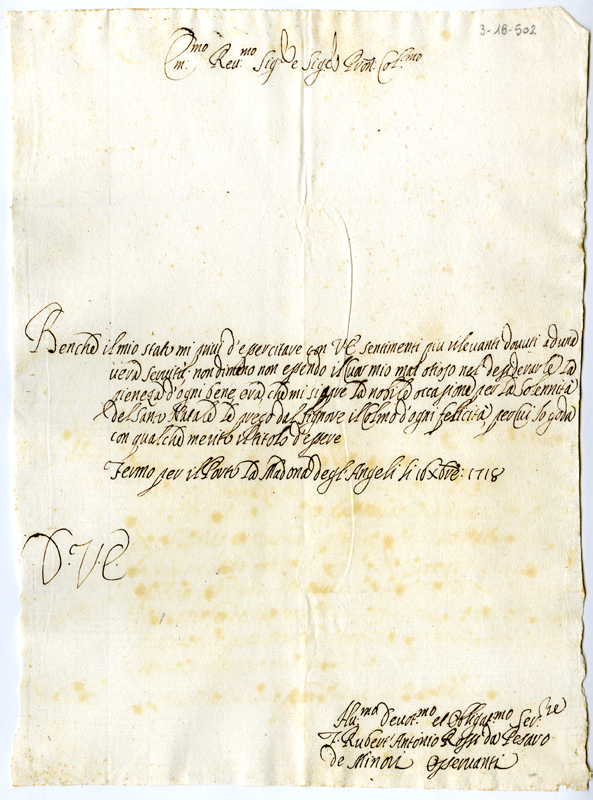 3-18-502
Em.mo Rev.mo Sig.re e Sig.re Pron. Col.mo
Benche il mio stato mi privi d'esercitare con VE sentimenti piu rilevanti dovuti ad una
vera servitù, nondimeno non essendo il cuor mio mai otioso nel desiderarle la
pienezza d'ogni bene, ora che mi si apre la nobile occasione per la solennità
del Santo Natale le prego dal Signore il colmo d'ogni felicità, per cui Io goda
con qualche merito il titolo d'essere
Fermo per il Porto la Madona degl'Angeli li 16 Xbre: 1718
D. V. E.
Hu.ma Devot.mo et Obligat.mo Ser.re
F. Rubert.o Antonio Rossi da Pesaro
de Minori Osservanti